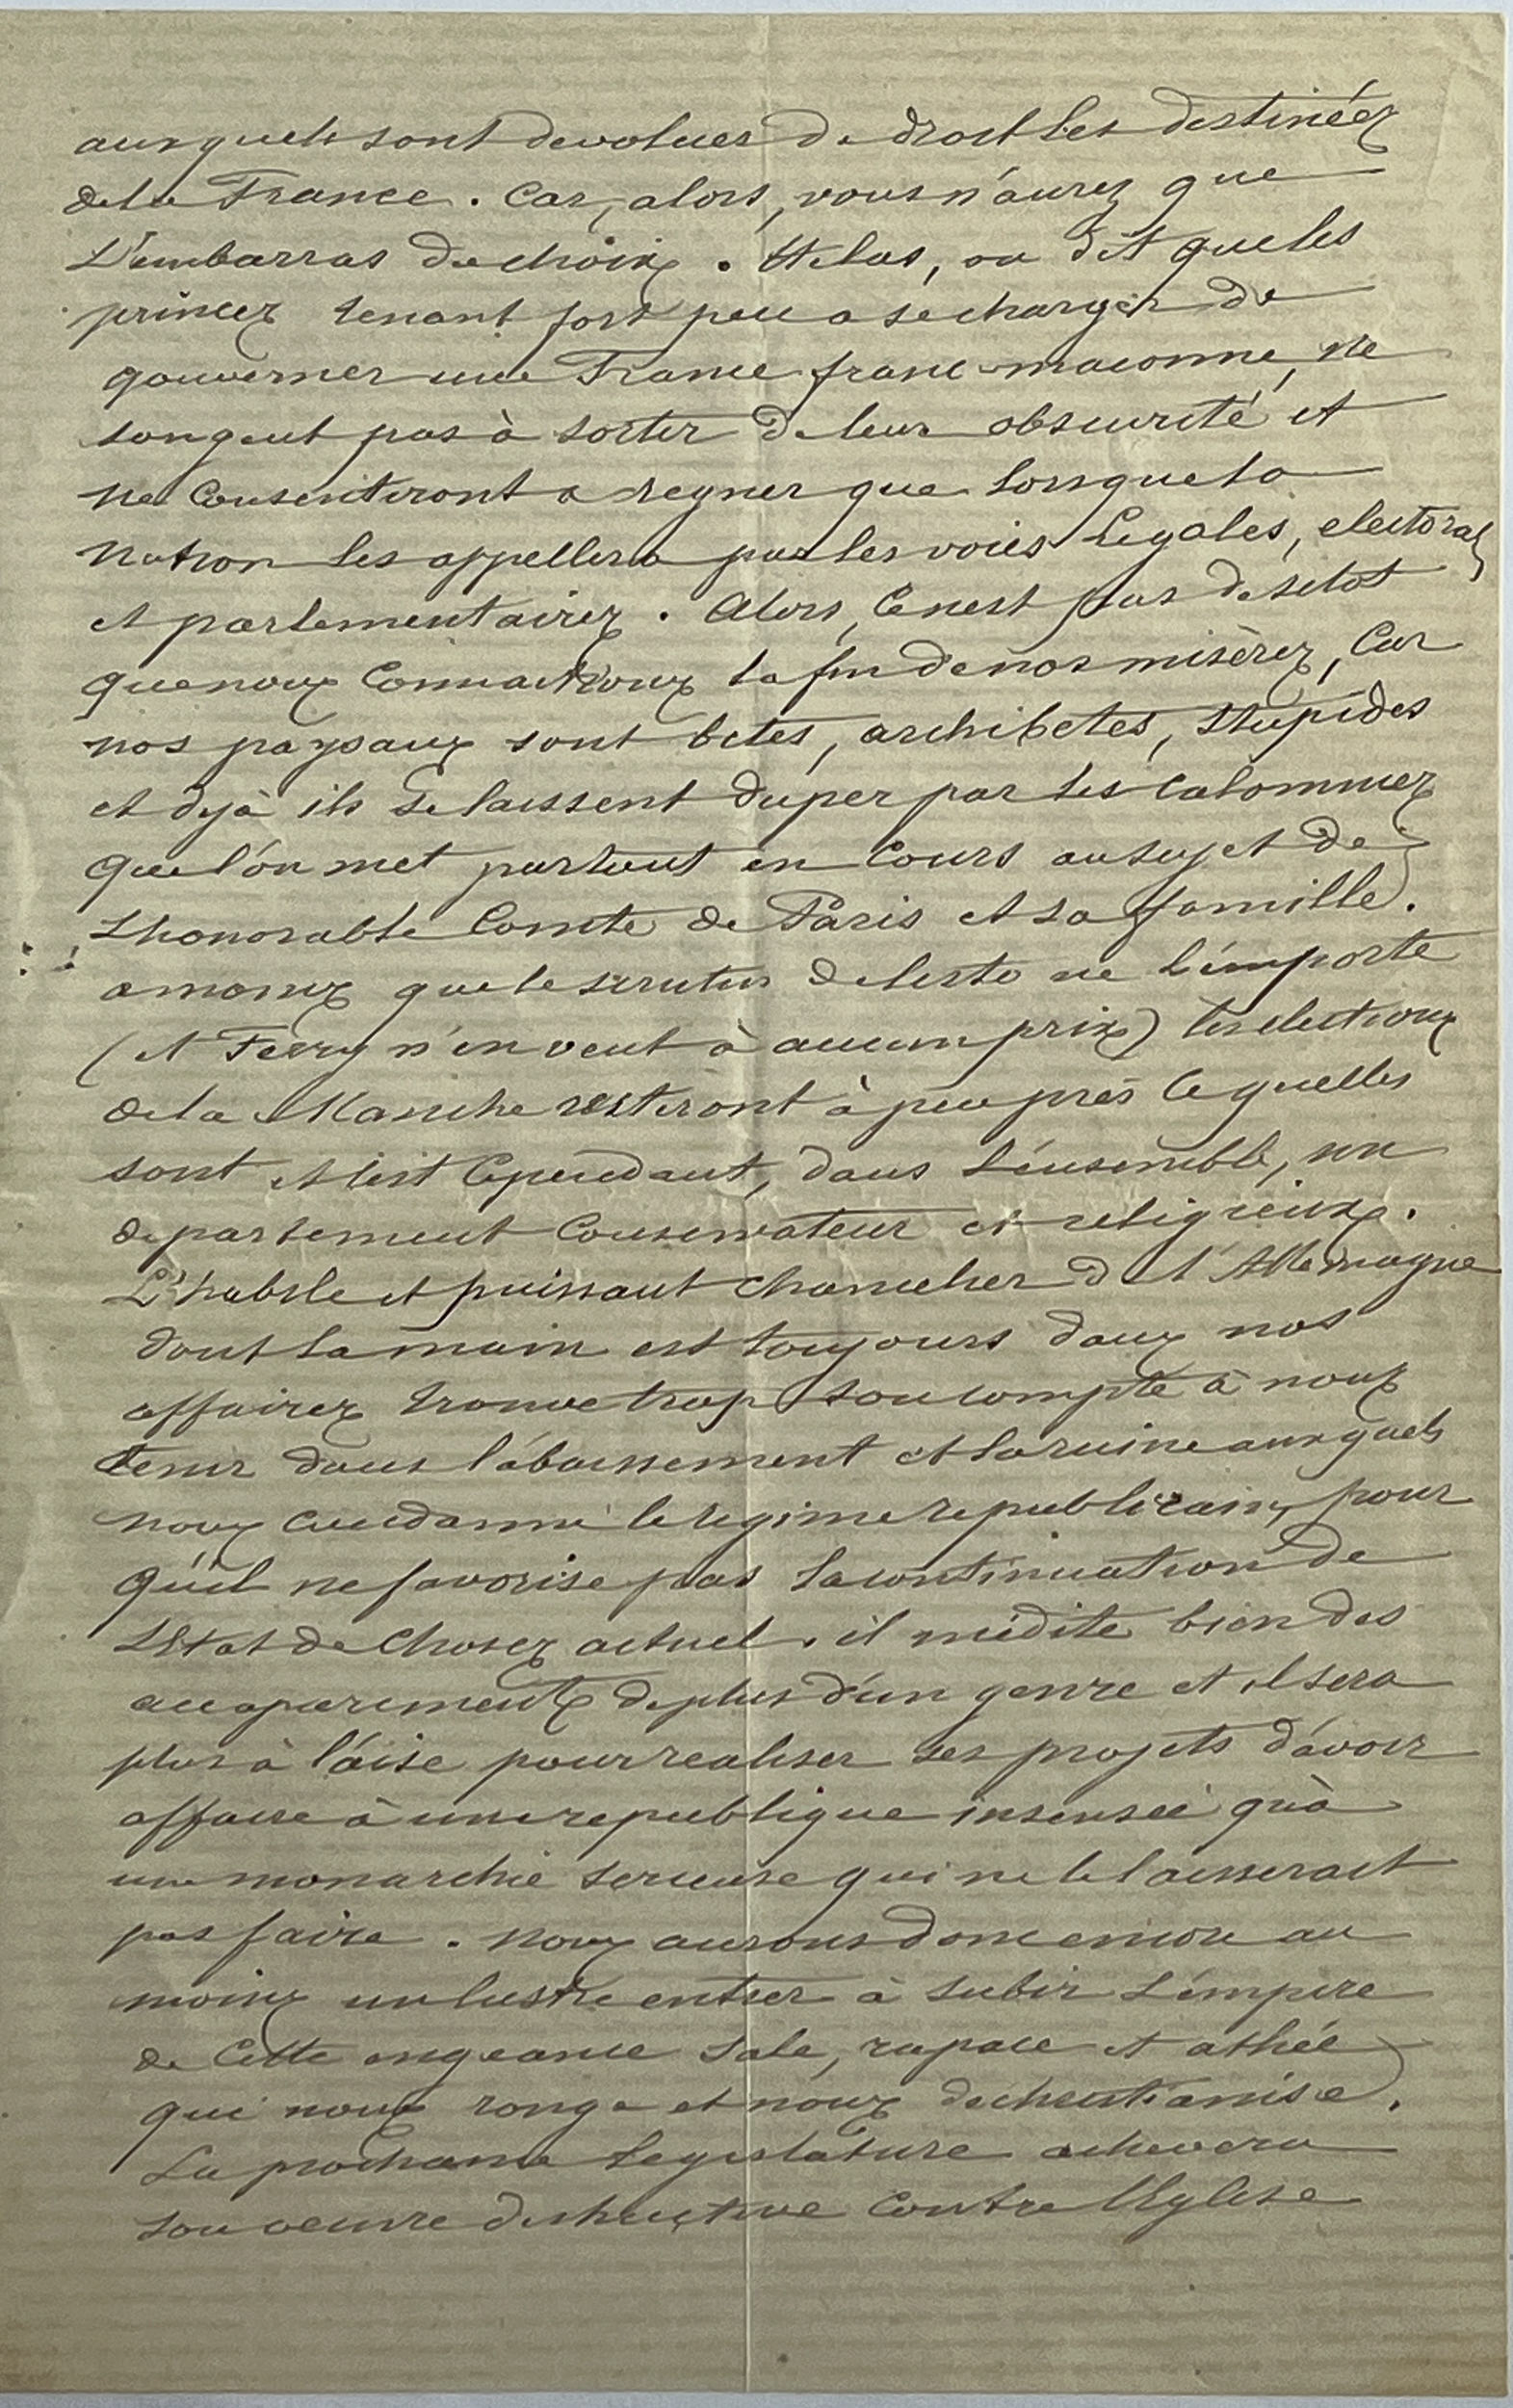 auxquels sont devolues de droit les destinées
de la France. Car, alors, vous n'aurez que
L'embarras du choix. Helas, on dit que les
princes tenant fort peu a se charger de
gouverner une France franc-maconne, ne
songent pas à sortir de leur obscurité et
ne Consentiront a regner que lorsque la
nation les appellera par les voies Legales, electorales
et parlementaires. Alors, Ce nest pas de sitot
que nous Connaitrons la fin de nos misères, Car
nos paysans sont betes, archibetes, stupides
et dejà ils se laissent duper par les Calomnies
que l'on met partout en Cours au sujet de
L'honorable Comte de Paris et sa famille.
a moins que le scrutin de liste ne l'emporte
(et Ferry n'en veut à aucun prix) les elections
de la Manche resteront à peu près Ce quelles
sont et c'est Cependant, dans L'ensemble, un
departement Conservateur et religieux.
L'habile et puissant chancelier de l'Allemagne
dont la main est toujours dans nos
affaires trouve trop son compte à nous
tenir dans l'abaissement et la ruine auxquels
nous Condamne le regime republicain, pour
qu'il ne favorise pas la continuation de
L'Etat de Choses actuel. il médite bien des
accaparements de plus d'un genre et il sera
plus à l'aise pour realiser ses projets d'avoir
affaire à une republique insensée qu'à
une monarchie serieuse qui ne le laisserait
pas faire. nous aurons donc encore au
moins un lustre entier à subir L'empire
de Cette engeance sale, rapace et athée
qui nous ronge et nous dechristianise.
La prochaine legislature achevera
son oeuvre destructive Contre l'Eglise